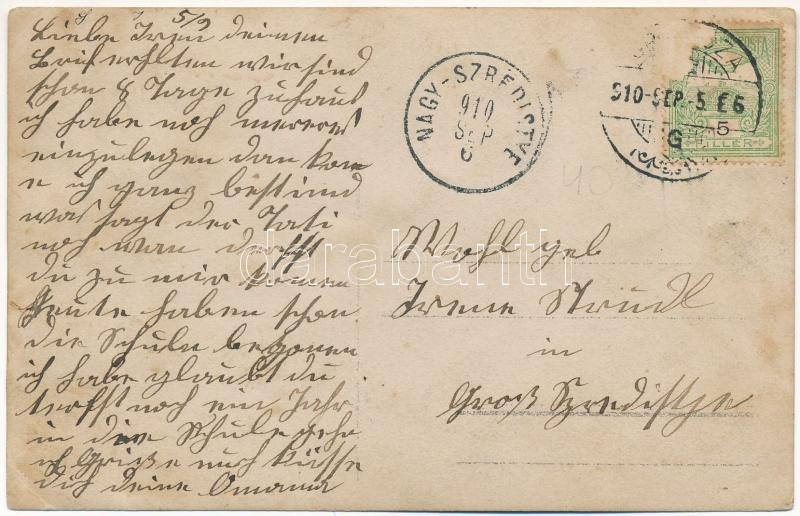 5/9
Liebe Iren deinen
Brif erhlten wir sind
schon 8 Tage zuhaus
ich habe noch mereres
einzulegen dan kom
e ich ganz bestimd
was sagt der Tati
noch wan derfst
du zu mir komen
Heute haben schon
die Schule begonen
ich habe glaubt du
terfst noch ein Jahr
in die Schule gehn
ich Grüße und Küsse
dich deine Omama
NAGY-SZREDISTYE
910
SEP
6
910-SEP-5 E6
G
5
FILLER
Wohlgeb
Irene Strudl
in
Groß Szredistye
darabanth